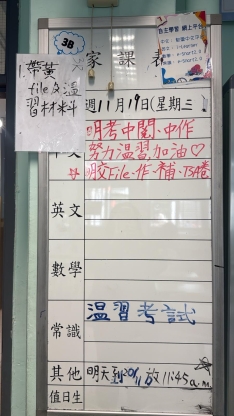 3B
家課表
自主學習 網上平台
1.帶黃
file及溫
習材料
週11月19日(星期三)
明考中閱、中作
中文
努力溫習,加油♡
膠File、作、補、TSA卷
英文
數學
常識
溫習考試
其他
明天到 20/11 放 11:45a.m.
值日生